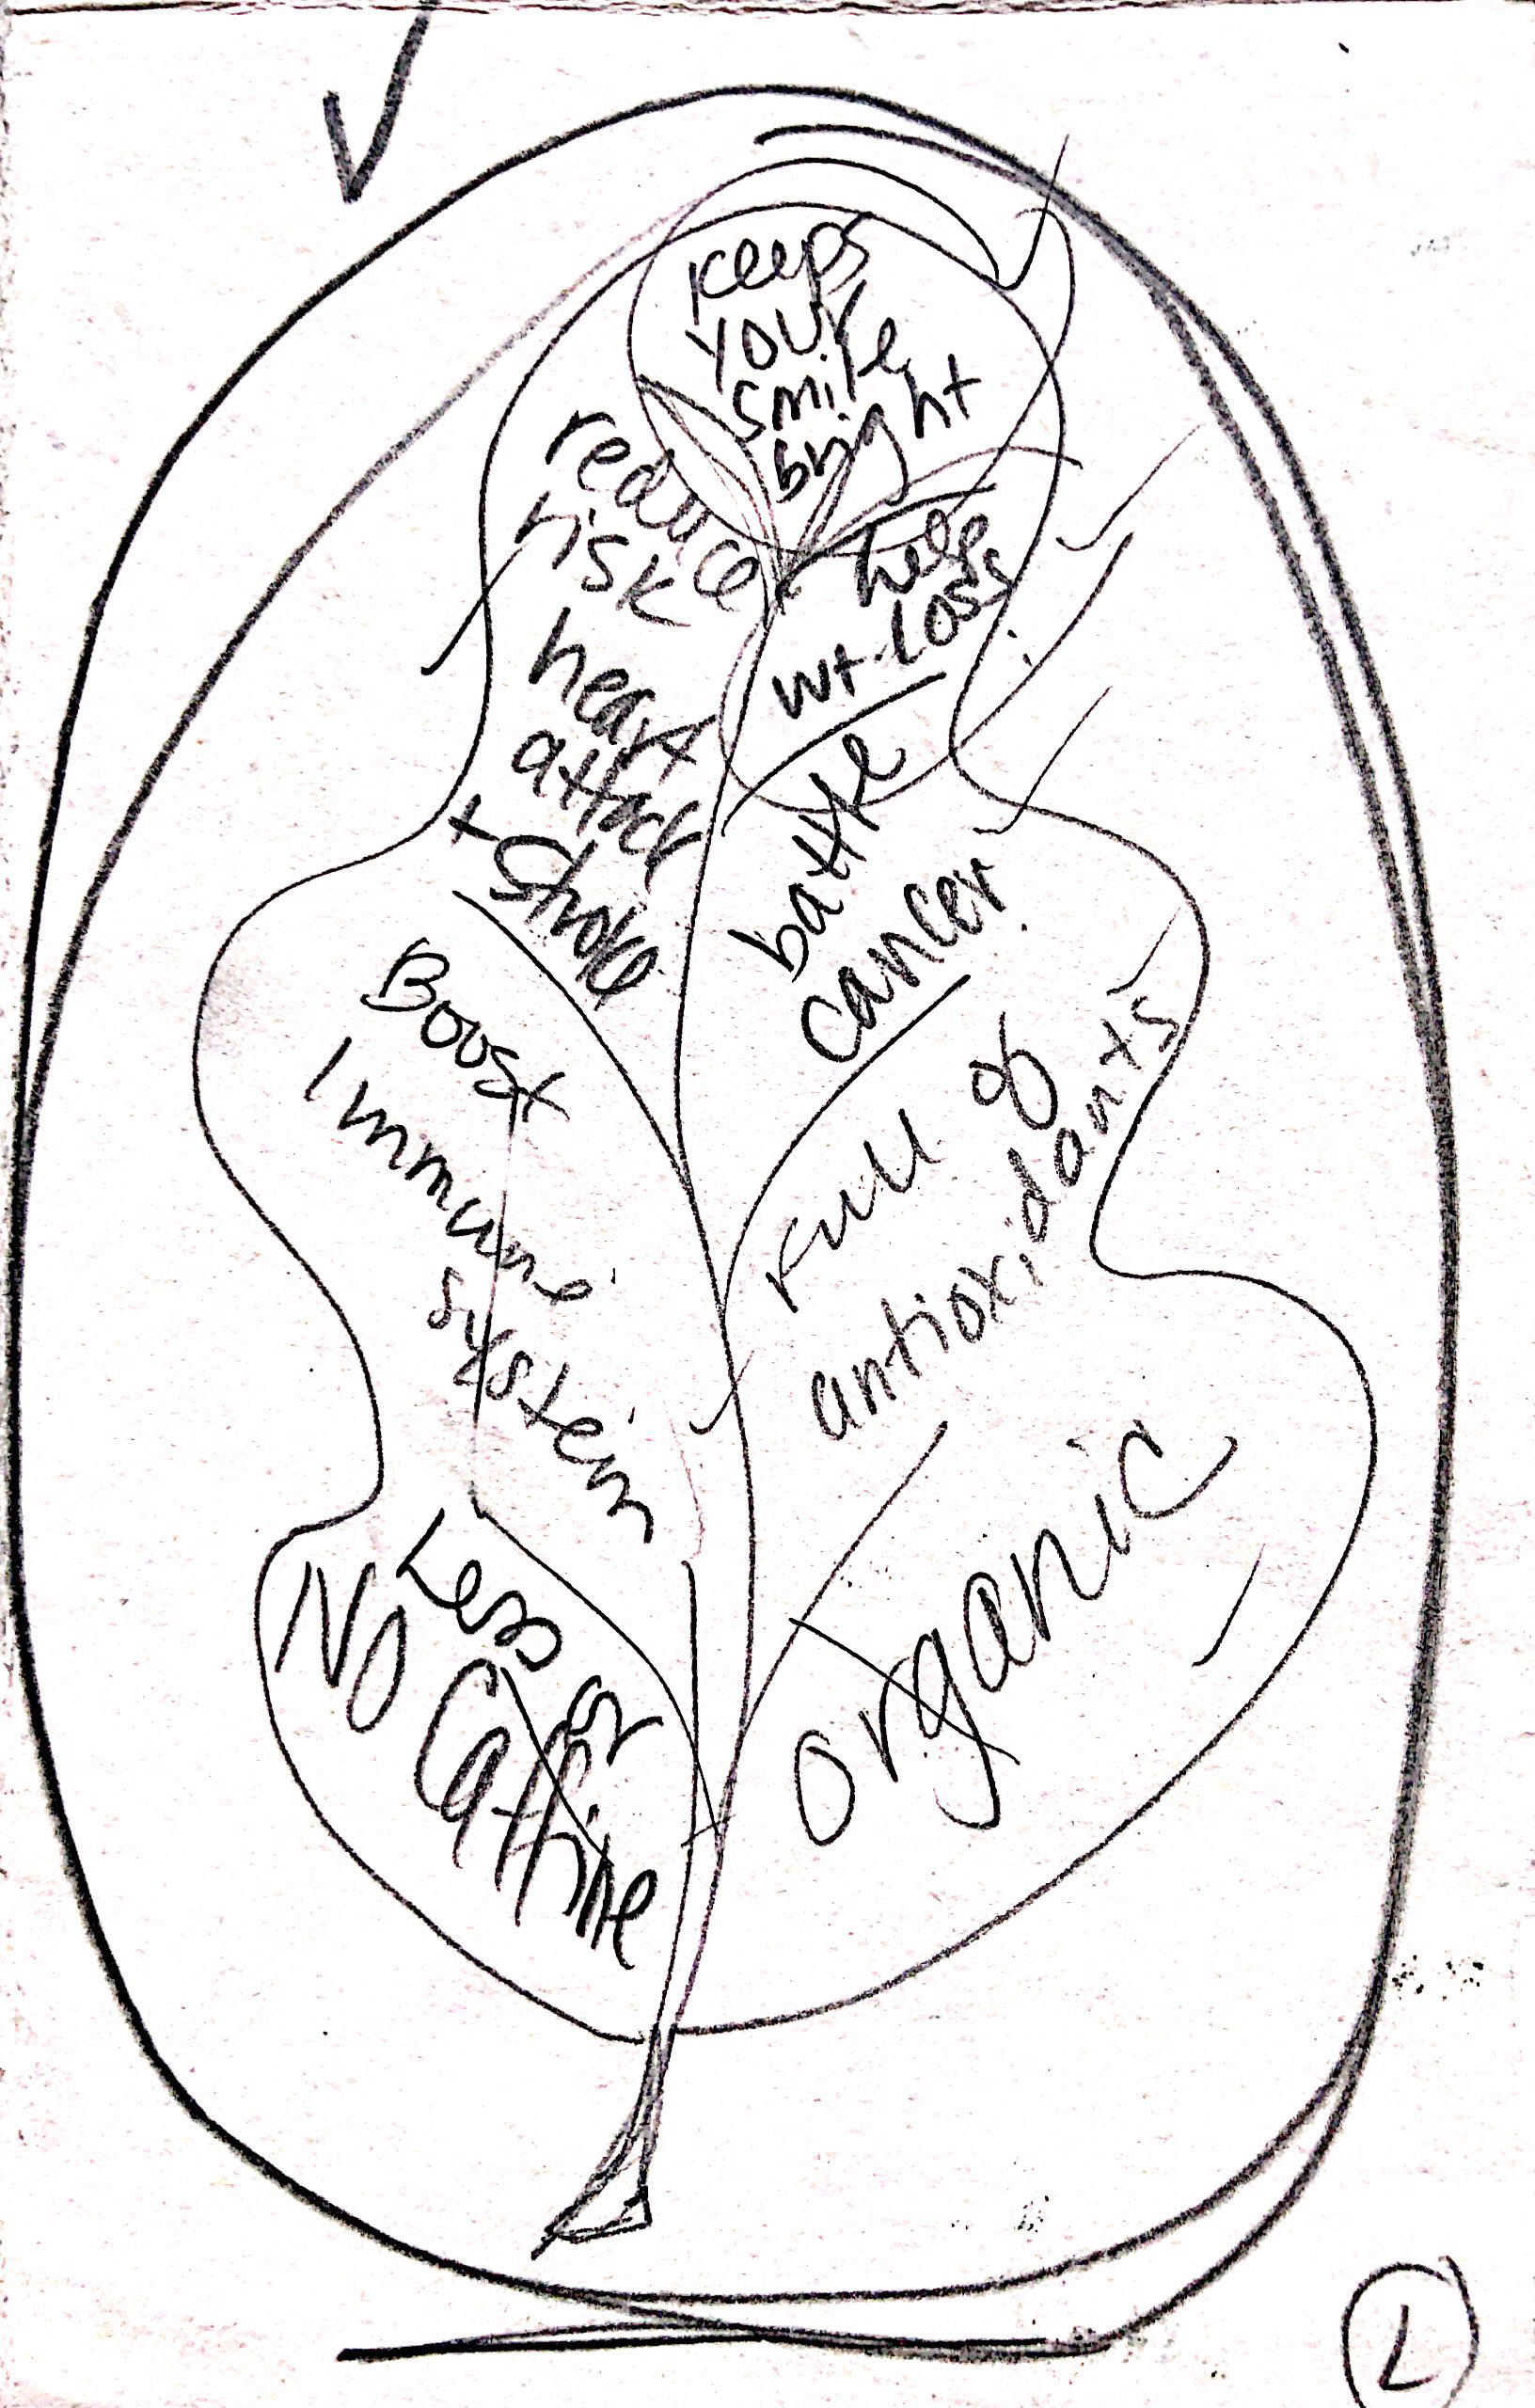 keeps
your
smile
bright
reduce
risk
heart
attack
+ Stroke
help
wt. loss
battle
cancer
Boost
Immune
system
Full of
antioxidants
Less or
No Caffine
organic
L